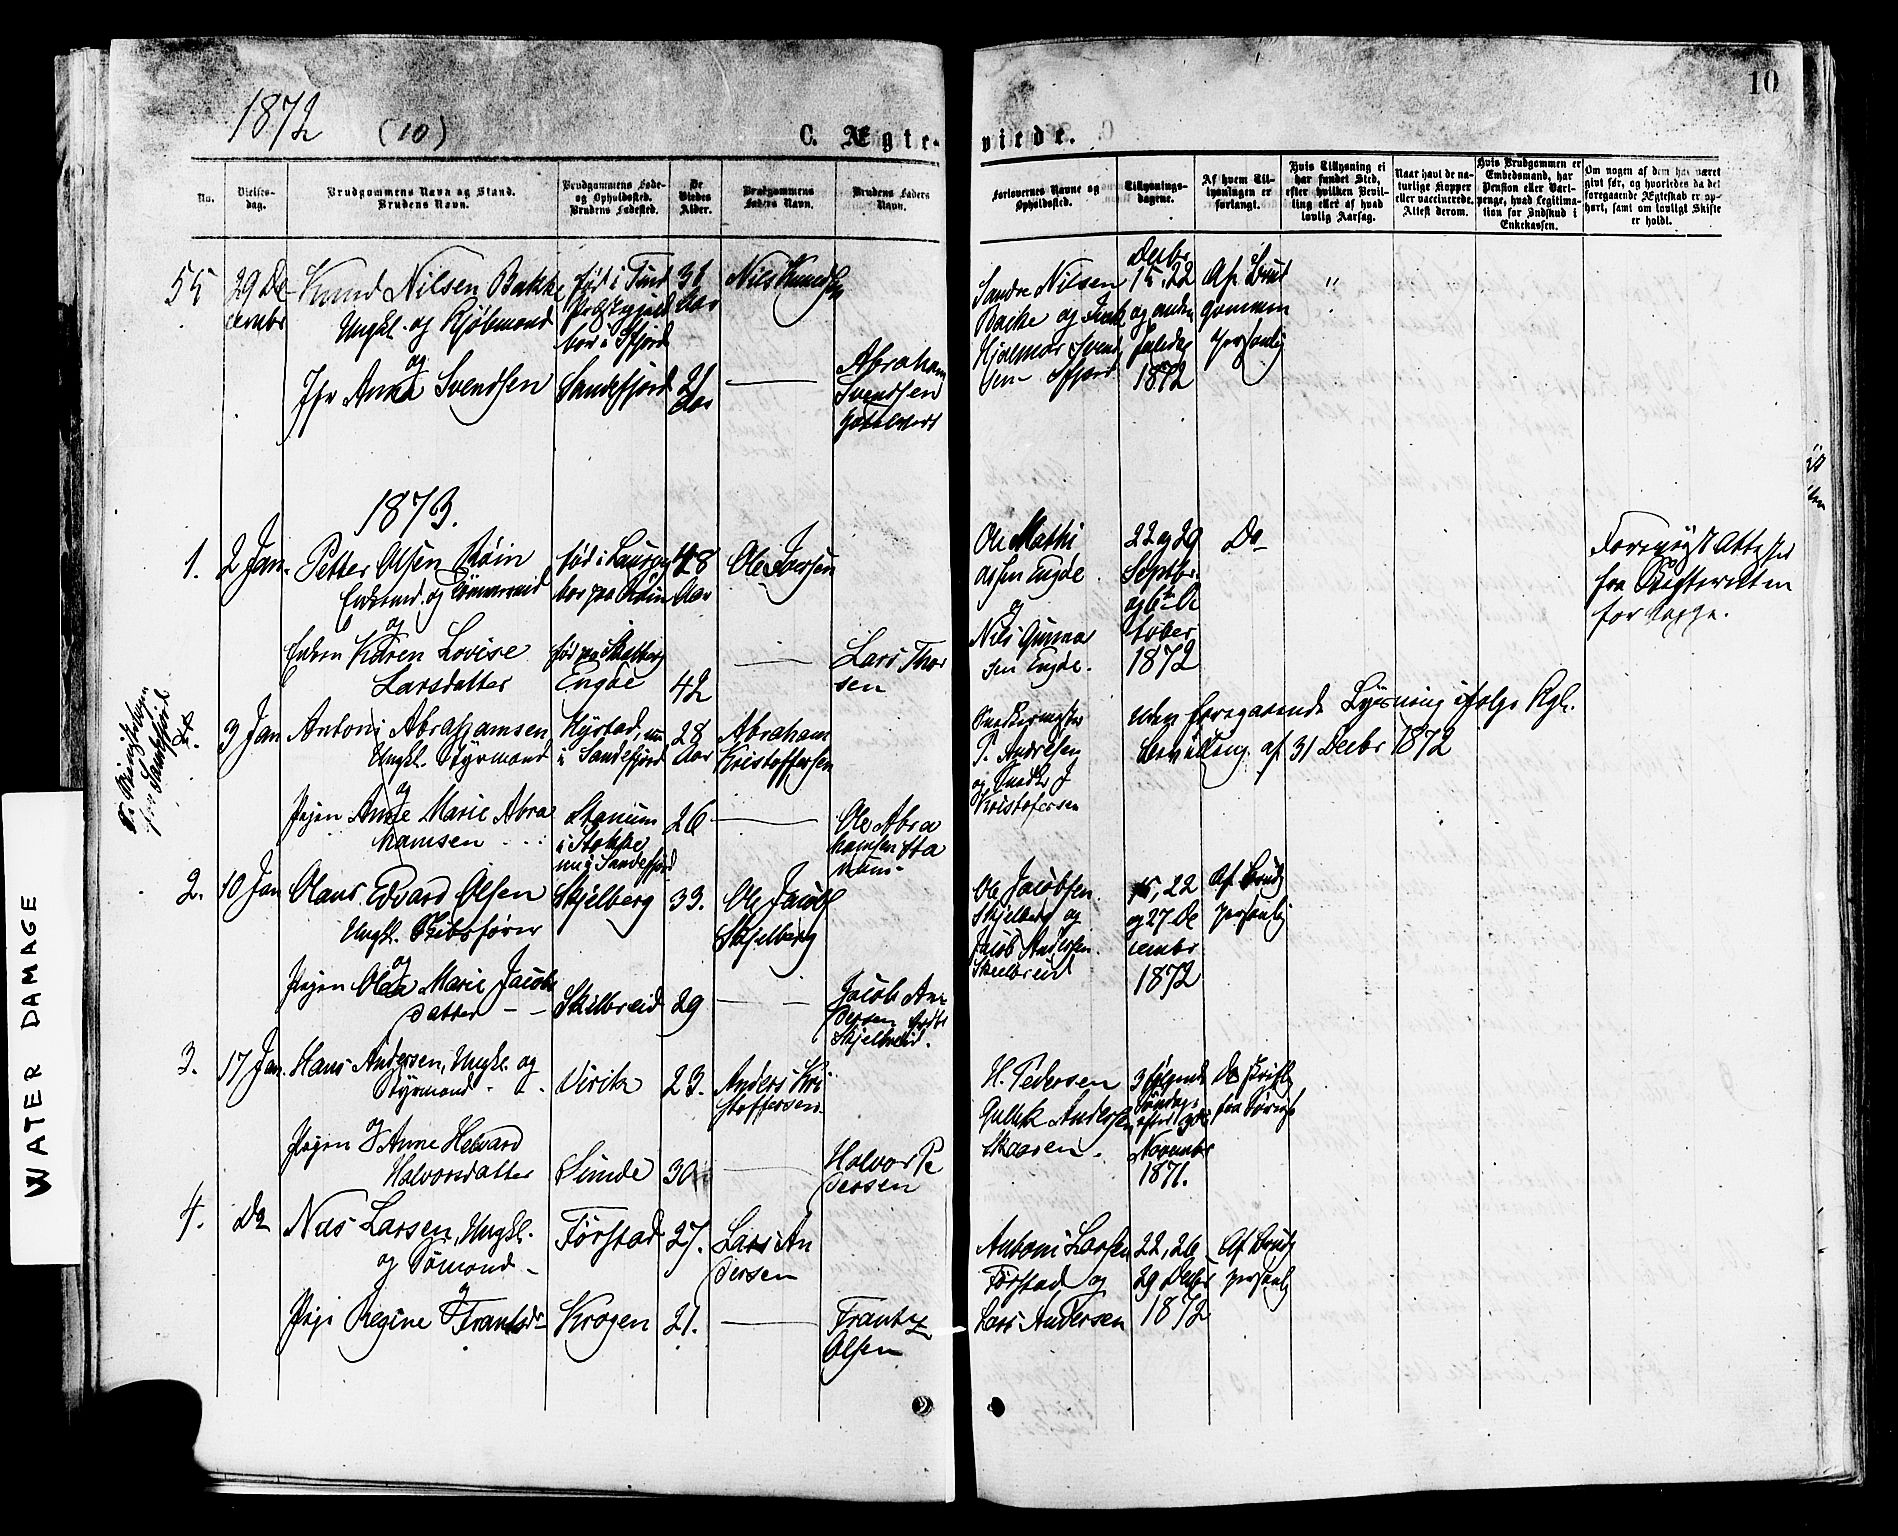 1872 (10) C. Ægte- viede. 10
No.
Vielses-
dag.
Brudgommens Navn og Stand.
Brudens Navn.
Brudgommens Føde-
og Opholdssted.
Brudens Fødested.
De
Viedes
Alder.
Brudgommens
Faders Navn.
Brudens Faders
Navn.
Forlovernes Navne og
Opholdssted.
Tillysnings-
dagene.
Af hvem Til-
lysningen er
forlangt.
Hvis Tillysning ei
har fundet Sted,
efter hvilken Bevil-
ling eller af hvad
lovlig Aarsag.
Naar havt de na-
turlige Kopper
eller vaccinerede.
Attest derom.
Hvis Brudgommen er
Embedsmand, har
Pension eller Vart-
penge, hvad Legitima-
tion for Indskud i
Enkekassen.
Om nogen af dem har været
givt før, og hvorledes da det
foregaaende Ægteskab er op-
hørt, samt om lovligt Skifte
er holdt.
55
29 De-
cembr
Knud Nilsen Bakke
Ungkl. og Kjøbmand
og
Jfr Anna Svendsen
født i Tind
bor i Sfjord
Sandefjord
31
Aar
21
Aar
Nils Knudsen
Abraham
Svendsen
Sandre Nilsen
Backe og
Hjalmar Svend
sen Sfjord
Decbr
15, 22
og anden
Juledag
1872
Af Brud
gommen
personlig
"
1873.
1.
2 Jan.
Petter Olsen Røin
Enkemd. og Tømmermd
og
Enken Karen Lovise
Larsdatter
født i Laurvig
bor paa Røin
før paa Skalberg
Engøe
48
Aar
42
Ole Larsen
Lars Thor
sen
Ole Mathi
assen Engøe
og
Nils Gunnar
sen Engøe.
22 og 29
Septbr.
og 6te Oc
tober
1872
Do
Forevist Attest
fra Skifteretten
for begge.
for Sandefjord
3 Jan
Antoni Abrahamsen
Ungkl. Styrmand
og
Pigen Anne Marie Abra
hamsen
Nystad, nu
i Sandefjord
Stanum
i Stokke
nu i Sandefjord
28
Aar
26
Abraham
Kristoffersen
Ole Abra
hamsen Sta
num
Snedkermester
P. Andresen
og Snedkr J
Kristofersen
Uden foregaaende Lysning ifølge Kgl.
bevilling af 31 Decbr 1872
2.
10 Jan
Olaus Edvard Olsen
Ungkl. Skibsfører
og
Pigen Olea Marie Jacobs
datter
Skjelberg
Skilbreid
33.
29
Ole Jacobs
Skjelberg
Jacob An
dersen
Skjelbreid.
Ole Jacobsen
Skjelberg og
Jacob Andersen
Skelbreid
15, 22
og 27 De
cembr
1872
Af Brudg
personlig
3.
17 Jan.
Hans Andersen, Ungkl. og
Styrmand
og
Pigen Anne Helvard
Halvorsdatter
Virik
Sunde
23.
30
Anders Kri
stoffersen
Halvor Pe
dersen
H. Pedersen
Gullik Andersen
Skaaren.
3 følgende
Søndage
efter
November
1871.
Do skriftl
4.
Do
Nils Larsen, Ungkl.
og Sømand
og
Pige Regine Frantsdr
Førstad
Krogen
27.
21.
Lars An
dersen
Frantz
Olsen
Antoni Larsen
Førstad og
Lars Andersen
22, 26
29 Decbr
1872
Af Brudg
personl
WATER DAMAGE